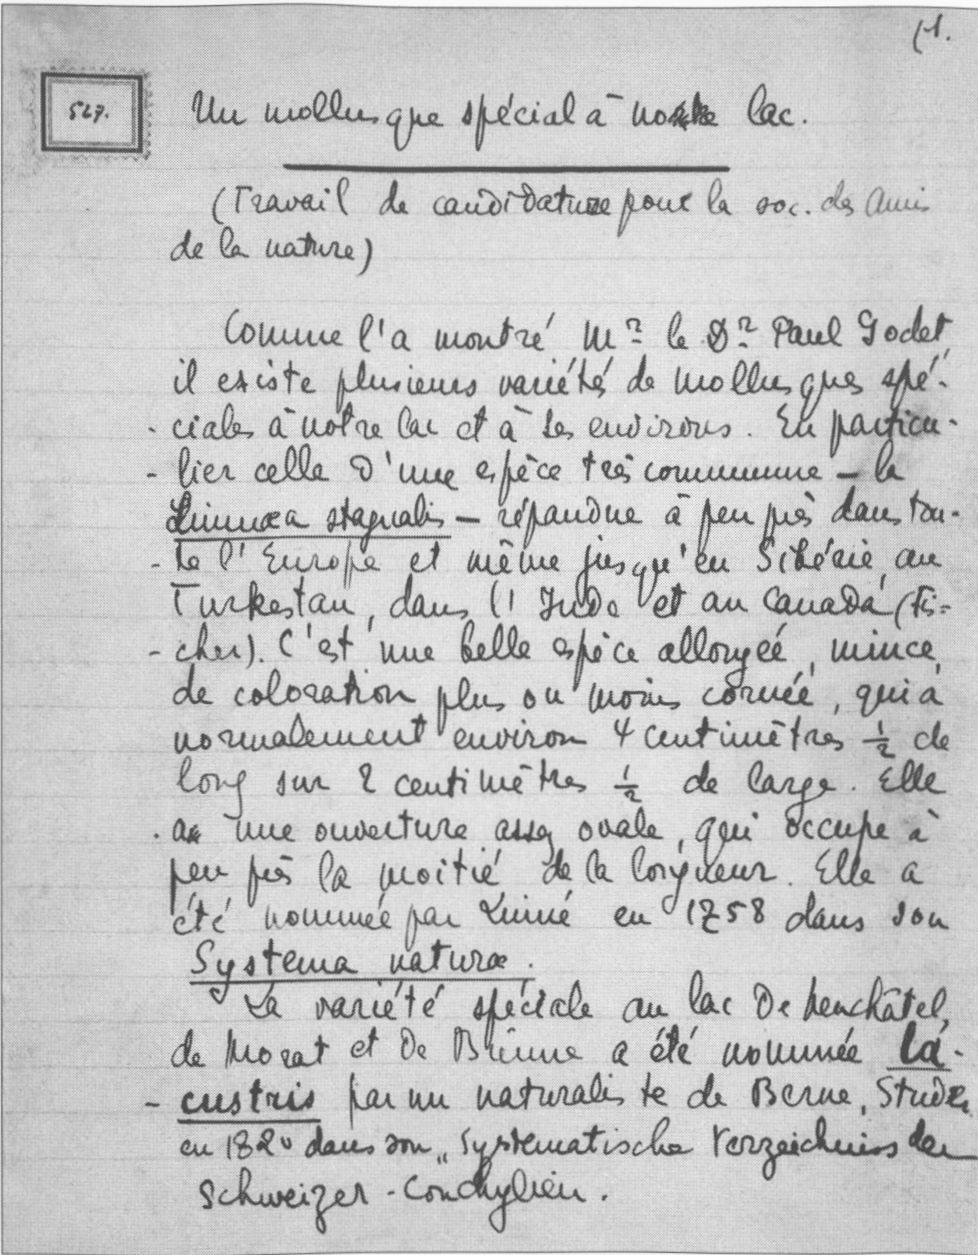 (1.
527.
Un mollusque spécial à notre lac.
(Travail de candidature pour la soc. des Amis
de la nature)
Comme l'a montré Mr le Dr Paul Godet
il existe plusieurs variétés de mollusques spé-
-ciales à notre lac et à ses environs. En particu-
-lier celle d'une espèce très commune – la
Limnæa stagnalis – répandue à peu près dans tou-
-te l'Europe et même jusqu'en Sibérie au
Turkestan, dans l'Inde et au Canada (Fis-
-cher). C'est une belle espèce allongée, mince,
de coloration plus ou moins cornée, qui a
normalement environ 4 centimètres ½ de
long sur 2 centimètres ½ de large. Elle
a une ouverture assez ovale, qui occupe à
peu près la moitié de la longueur. Elle a
été nommée par Linné en 1758 dans son
Systema naturæ.
La variété spéciale au lac De Neuchâtel,
de Morat et De Bienne a été nommée la-
-custris par un naturaliste de Berne, Studer
en 1820 dans son „Systematische Verzeichniss der
Schweizer-Conchylien.